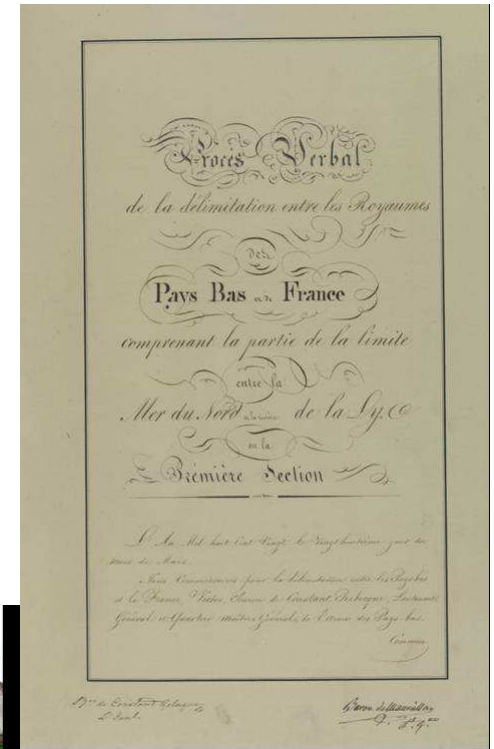 Procès Verbal
de la délimitation entre les Royaumes
des
Pays Bas et de France
comprenant la partie de la limite
entre la
Mer du Nord et la rivière de la Lys.
ou la
Prémière Section
L'An Mil huit Cent Vingt le Vingt huitième jour du
mois de Mars
Nous Commissaires pour la délimitation entre les Pays-bas
et la France, Victor, Baron de Constant Rebecque, Lieutenant
Général et Quartier Maître Général de l'Armée des Pays-bas
Bon de Constant Rebecque
Lt Genl.
Baron